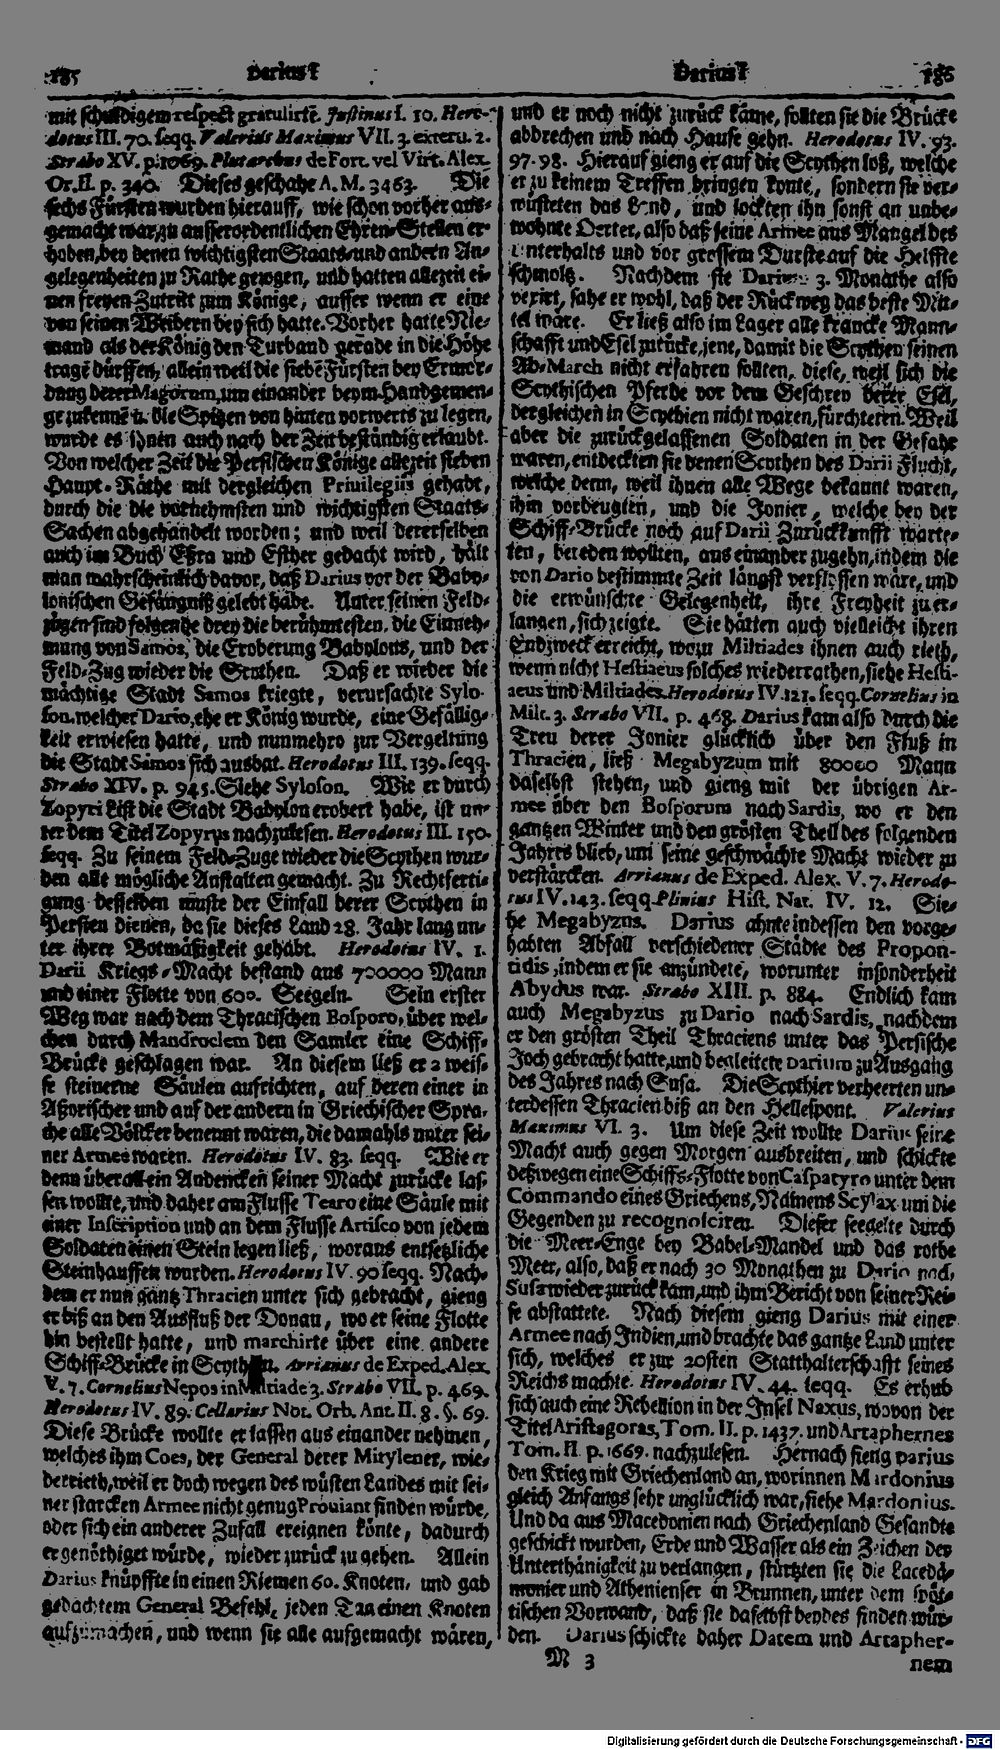 185 Darius I
mit schuldigem respect gratulirtē. Justinus I. 10. Hero-
dotus III. 70. seqq. Valerius Maximus VII. 3. extern. 2.
Strabo XV. p. 1069. Plutarchus de Fort. vel Virt. Alex.
Or. II. p. 340. Dieses geschahe A. M. 3463. Die
sechs Fürsten wurden hierauff, wie schon vorher aus-
gemacht war, zu ausserordentlichen Ehren-Stellen er-
hoben, bey denen wichtigsten Staats- und andern An-
gelegenheiten zu Rathe gezogen, und hatten allezeit ei-
nen freyen Zutritt zum Könige, ausser wenn er eine
von seinen Weibern bey sich hatte. Vorher hatte Nie-
mand als der König den Turband gerade in die Höhe
tragē dürffen, allein weil die siebē Fürsten bey Ermor-
dung derer Magorum, um einander beym Handgemen-
ge zu kennē u. die Spitzen von hinten vorwerts zu legen,
wurde es ihnen auch nach der Zeit beständig erlaubt.
Von welcher Zeit die Persischen Könige allezeit sieben
Haupt-Räthe mit dergleichen Priuilegiis gehabt,
durch die die vornehmsten und wichtigsten Staats-
Sachen abgehandelt worden; und weil dererselben
auch im Buch Esra und Esther gedacht wird, hält
man wahrscheinlich davor, daß Darius vor der Baby-
lonischen Gefängniß gelebt habe. Unter seinen Feld-
zügen sind folgende drey die berühmtesten, die Einneh-
mung von Samos, die Eroberung Babylons, und der
Feld-Zug wieder die Scythen. Daß er wieder die
mächtige Stadt Samos kriegte, verursachte Sylo-
son, welcher Dario, ehe er König wurde, eine Gefällig-
keit erwiesen hatte, und nunmehro zur Vergeltung
die Stadt Samos sich ausbat. Herodotus III. 139. seqq.
Strabo XIV. p. 945. Siehe Syloson. Wie er durch
Zopyri List die Stadt Babylon erobert habe, ist un-
ter dem Titel Zopyrus nachzulesen. Herodotus III. 150.
seqq. Zu seinem Feld-Zuge wieder die Scythen wur-
den alle mögliche Anstalten gemacht. Zu Rechtferti-
gung desselben muste der Einfall derer Scythen in
Persien dienen, da sie dieses Land 28. Jahr lang un-
ter ihrer Botmäßigkeit gehabt. Herodotus IV. 1.
Darii Kriegs-Macht bestand aus 700000 Mann
und einer Flotte von 600. Seegeln. Sein erster
Weg war nach dem Thracischen Bosporo, über wel-
chen durch Mandroclem den Samier eine Schiff-
Brücke geschlagen war. An diesem ließ er 2 weis-
se steinerne Säulen aufrichten, auf deren einer in
Aßyrischer und auf der andern in Griechischer Spra-
che alle Völcker benennt waren, die damahls unter sei-
ner Armee waren. Herodotus IV. 83. seqq. Wie er
denn überall ein Andencken seiner Macht zurücke las-
sen wollte, und daher am Flusse Tearo eine Säule mit
einer Inscription und an dem Flusse Artisco von jedem
Soldaten einen Stein legen ließ, woraus entsetzliche
Steinhauffen wurden. Herodotus IV. 90 seqq. Nach-
dem er nun gantz Thracien unter sich gebracht, gieng
er biß an den Ausfluß der Donau, wo er seine Flotte
hin bestellt hatte, und marchirte über eine andere
Schiff-Brücke in Scythien. Arrianus de Exped. Alex.
V. 7. Cornelius Nepos in Miltiade 3. Strabo VII. p. 469.
Herodotus IV. 89. Cellarius Not. Orb. Ant. II. 8. §. 69.
Diese Brücke wollte er lassen aus einander nehmen,
welches ihm Coes, der General derer Mitylener, wie-
derrieth, weil er doch wegen des wüsten Landes mit sei-
ner starcken Armee nicht genug Proviant finden würde,
oder sich ein anderer Zufall ereignen könte, dadurch
er genöthiget würde, wieder zurück zu gehen. Allein
Darius knüpffte in einen Riemen 60. Knoten, und gab
gedachtem General Befehl, jeden Tag einen Knoten
aufzumachen, und wenn sie alle aufgemacht wären,
Darius I 186
und er noch nicht zurück käme, sollten sie die Brücke
abbrechen und nach Hause gehn. Herodotus IV. 93.
97. 98. Hierauf gieng er auf die Scythen loß, welche
er zu keinem Treffen bringen konte, sondern sie ver-
wüsteten das Land, und lockten ihn sonst an unbe-
wohnte Oerter, also daß seine Armee aus Mangel des
Unterhalts und vor grossem Durste auf die Helffte
schmoltz. Nachdem sie Darium 3. Monathe also
vexirt, sahe er wohl, daß der Rückweg das beste Mit-
tel wäre. Er ließ also im Lager alle krancke Mann-
schafft und Esel zurücke, jene, damit die Scythen seinen
Ab-March nicht erfahren sollten, diese, weil sich die
Scythischen Pferde vor dem Geschrey derer Esel,
dergleichen in Scythien nicht waren, fürchteten. Weil
aber die zurückgelassenen Soldaten in der Gefahr
waren, entdeckten sie denen Scythen des Darii Flucht,
welche denn, weil ihnen alle Wege bekannt waren,
ihm vorbeugten, und die Jonier, welche bey der
Schiff-Brücke noch auf Darii Zurückkunfft warte-
ten, bereden wollten, aus einander zugehn, indem die
von Dario bestimmte Zeit längst verflossen wäre, und
die erwünschte Gelegenheit, ihre Freyheit zu er-
langen, sich zeigte. Sie hätten auch vielleicht ihren
Endzweck erreicht, wozu Miltiades ihnen auch rieth,
wenn nicht Hestiaeus solches wiederrathen, siehe Hesti-
aeus und Miltiades. Herodotus IV. 121. seqq. Cornelius in
Milt. 3. Strabo VII. p. 468. Darius kam also durch die
Treu derer Jonier glücklich über den Fluß in
Thracien, ließ Megabyzum mit 80000 Mann
daselbst stehen, und gieng mit der übrigen Ar-
mee über den Bosporum nach Sardis, wo er den
gantzen Winter und den grösten Theil des folgenden
Jahres blieb, um seine geschwächte Macht wieder zu
verstärcken. Arrianus de Exped. Alex. V. 7. Herodo-
tus IV. 143. seqq. Plinius Hist. Nat. IV. 12. Sie-
he Megabyzus. Darius ahnte indessen den vorge-
habten Abfall verschiedener Städte des Propon-
tidis, indem er sie anzündete, worunter insonderheit
Abydus war. Strabo XIII. p. 884. Endlich kam
auch Megabyzus zu Dario nach Sardis, nachdem
er den grösten Theil Thraciens unter das Persische
Joch gebracht hatte, und begleitete Darium zu Ausgang
des Jahres nach Susa. Die Scythier verheerten un-
terdessen Thracien biß an den Hellespont. Valerius
Maximus VI. 3. Um diese Zeit wollte Darius seine
Macht auch gegen Morgen ausbreiten, und schickte
deßwegen eine Schiffs-Flotte von Caspatyro unter dem
Commando eines Griechens, Namens Scylax um die
Gegenden zu recognosciren. Dieser seegelte durch
die Meer-Enge bey Babel-Mandel und das rothe
Meer, also, daß er nach 30 Monathen zu Dario nach
Susa wieder zurück kam, und ihm Bericht von seiner Rei-
se abstattete. Nach diesem gieng Darius mit einer
Armee nach Indien, und brachte das gantze Land unter
sich, welches er zur 20sten Statthalterschafft seines
Reichs machte. Herodotus IV. 44. seqq. Es erhub
sich auch eine Rebellion in der Insel Naxus, wovon der
Titel Aristagoras, Tom. II. p. 1437. und Artaphernes
Tom. II. p. 1669. nachzulesen. Hernach fieng Darius
den Krieg mit Griechenland an, worinnen Mardonius
gleich Anfangs sehr unglücklich war, siehe Mardonius.
Und da aus Macedonien nach Griechenland Gesandte
geschickt wurden, Erde und Wasser als ein Zeichen der
Unterthänigkeit zu verlangen, stürtzten sie die Lacedä-
monier und Athenienser in Brunnen, unter dem spöt-
tischen Vorwand, daß sie daselbst beydes finden wür-
den. Darius schickte daher Datem und Artapher-
M 3 nem
Digitalisierung gefördert durch die Deutsche Forschungsgemeinschaft - DFG